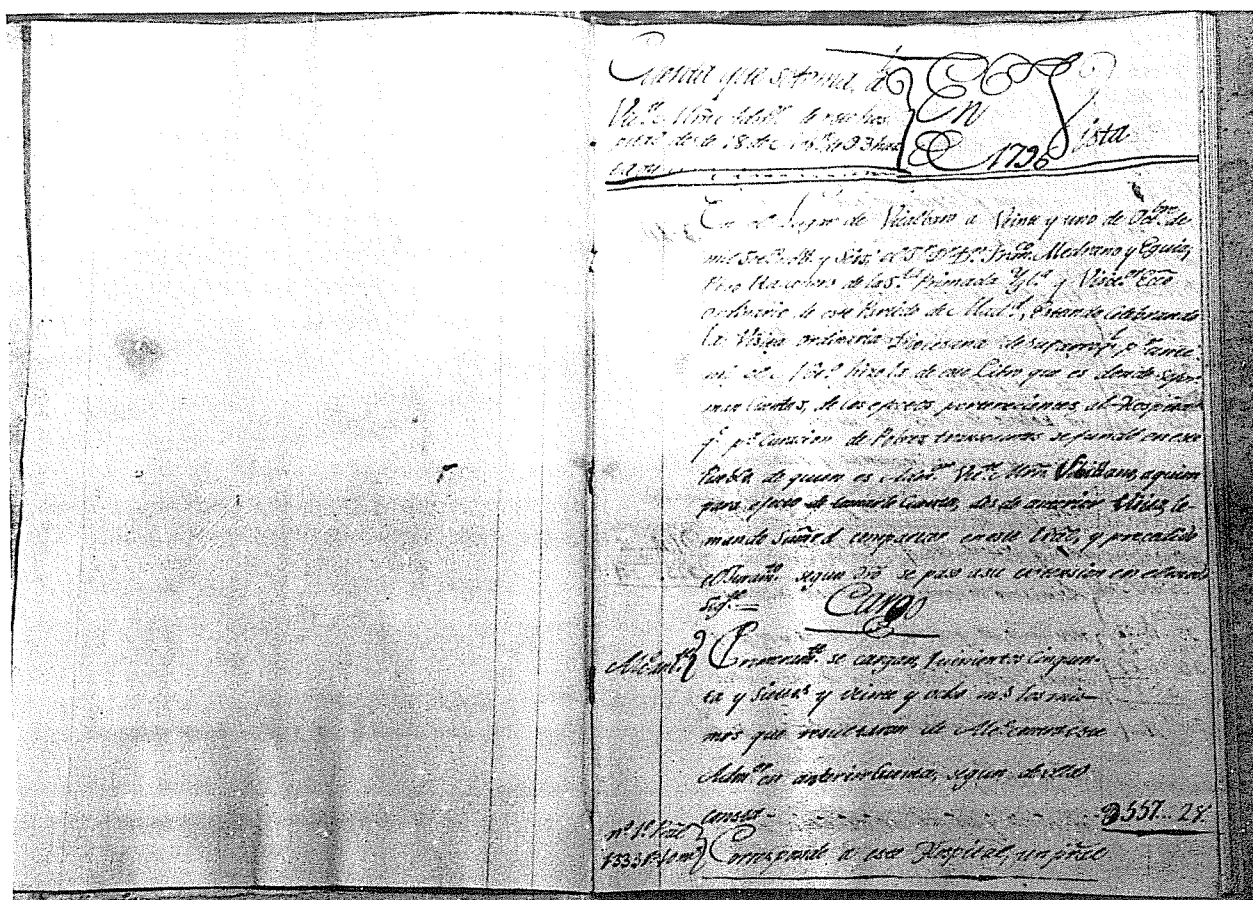 Cuenta que se toma, à
Vic.te de este hos
desde 18 de 93 has
En
Vista
1796
En el Lugar de Vicalbaro a Veinte y uno de Octbre. de
mil Set.s y Seis: el S.r D.n Fran.co Medrano y Eguia,
Racionero de la S.ta Primada Ygl.a y Visit.or Ecc.o
ordinario de este Partido de Mad.d, Estando celebrando
la Visita ordinaria Diocesana de su parroq.l p.r ante
mi el Not.o hizo la de este Libro que es donde se for-
man Cuentas, de los efectos pertenecientes al Hospital
q.e p.a Curacion de Pobres transeuntes se fundó en este
Pueblo de quien es Adm.or Vic.te aquien
para efecto de tomarle Cuenta, desde anterior Visita, le
mando Su md. comparecer en este y precedido
el Juram.to segun dro se paso a su extension en el modo
sig.te =
Cargo
Alc. ant.te
Primeram.te se cargan, Quinientos Cinquen-
ta y Siete r.s y veinte y ocho m.s los mis-
mos que resultaron de Alc.e contra este
Adm.or en anterior Cuenta, segun de ellas
consta - - - - - - - - - 557.. 28.
n.o 1.o
1533
Corresponde a este Hospital, un